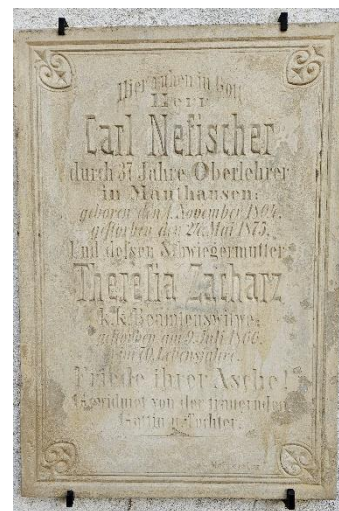 Hier ruhen in Gott
Herr
Carl Nefischer
durch 37 Jahre Oberlehrer
in Mauthausen:
geboren den 4. November 1804.
gestorben den 27. Mai 1875.
Und dessen Schwiegermutter
Theresia Zacharz
k. k. Beamtenswitwe:
gestorben am 9. Juli 1866.
im 70. Lebensjahre.
Friede ihrer Asche!
Gewidmet von der trauernden
Gattin u. Tochter.